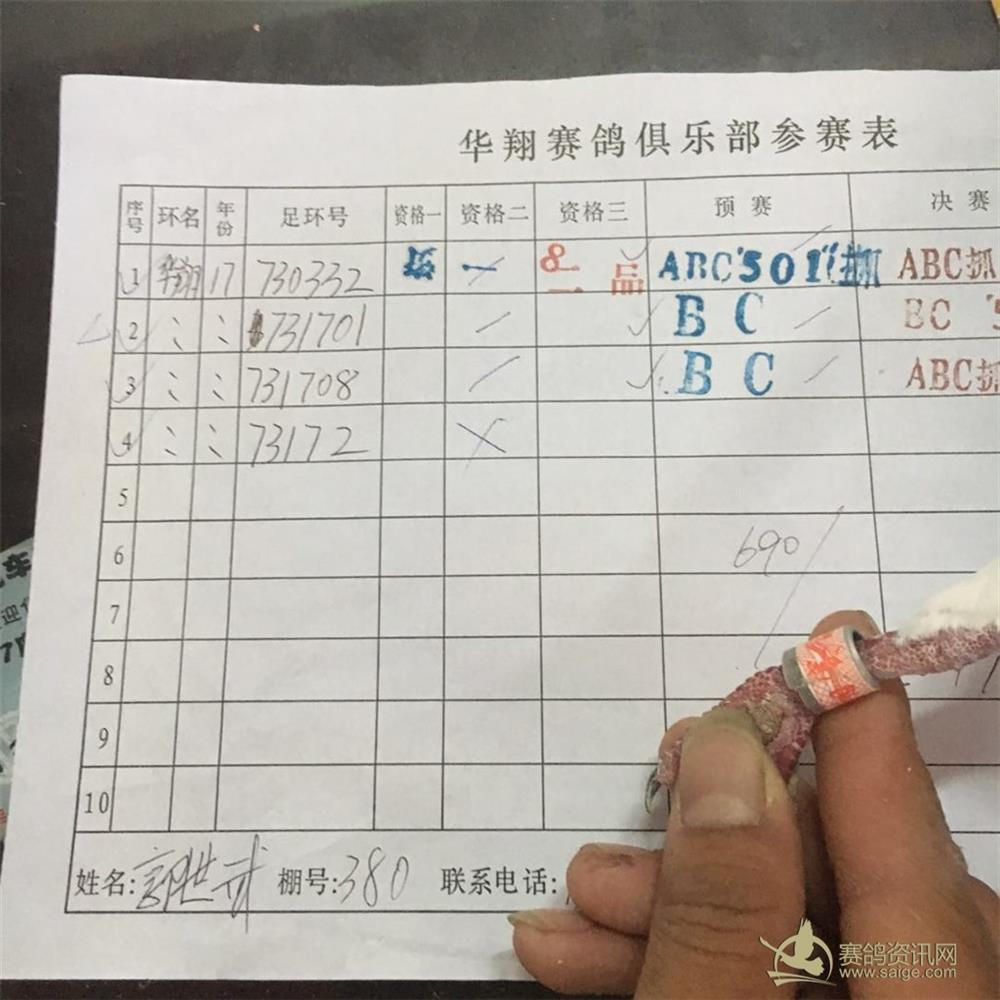 华翔赛鸽俱乐部参赛表
序号 环名 年份 足环号 资格一 资格二 资格三 预赛 决赛
1 华翔 17 730332 一 8 一品 ABC 501 抓 ABC抓
2 〃 〃 731701 BC BC
3 〃 〃 731708 BC ABC抓
4 〃 〃 73172
5
6 690
7
8
9
10
姓名: 棚号:380 联系电话:
车
迎
赛鸽资讯网
www.saige.com